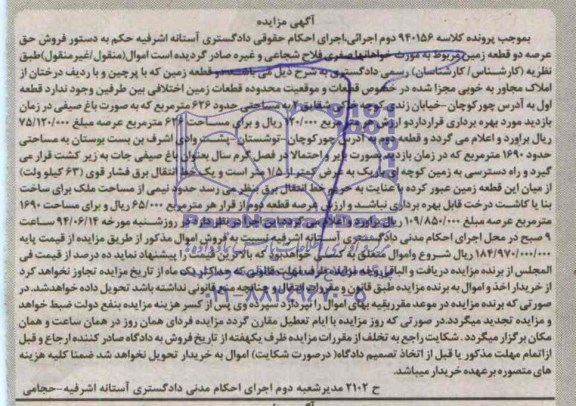 آگهی مزایده
بموجب پرونده کلاسه ۹۴۰۱۵۶ دوم اجرائی،اجرای احکام حقوقی دادگستری آستانه اشرفیه حکم به دستور فروش حق
عرصه دو قطعه زمین مربوط به مورث خواهانها صفری فلاح شجاعی و غیره صادر گردیده است اموال(منقول/غیرمنقول)طبق
نظریه (کارشناس/ کارشناسان) رسمی دادگستری به شرح ذیل می باشند دو قطعه زمین که با پرچین و با ردیف درختان از
املاک مجاور به خوبی مجزا شده در خصوص قطعات و موقعیت محدوده قطعات زمین اختلافی بین طرفین وجود ندارد قطعه
اول به آدرس چورکوچان-خیابان زندی-کوچه به مساحتی حدود ۶۲۶ مترمربع که به صورت باغ صیفی در زمان
بازدید مورد بهره برداری قرارداردو ارزش هر مترمربع ۱۲۰/۰۰۰ ریال و برای مساحت ۶۲۶ مترمربع عرصه مبلغ ۷۵/۱۲۰/۰۰۰
ریال براورد و اعلام می گردد و قطعه دوم به آدرس چورکوچان-توشستان-پشت وادی اشرف بن بست بوستان به مساحتی
حدود ۱۶۹۰ مترمربع که در زمان بازدید بصورت بایر و احتمالا در فصل گرم سال بعنوان باغ صیفی جات به زیر کشت قرار می
گیرد و راه دسترسی به زمین کوچه ای باریک به عرض کمتر از ۱/۵ متر است و یک خط انتقال برق فشار قوی (۶۳ کیلو ولت)
از میان این قطعه زمین عبور کرده با عنایت به حریم خط انتقال برق بنظر می رسد حدود نیمی از مساحت ملک برای ساخت
بنا یا کاشت درخت قابل بهره برداری نباشد و ارزش عرصه قطعه دوم از قرار هر مترمربع ۶۵/۰۰۰ ریال و برای مساحت ۱۶۹۰
مترمربع عرصه مبلغ ۱۰۹/۸۵۰/۰۰۰ ریال براورد و اعلام می گردد این اجرا در نظر دارد در روز شنبه مورخه ۹۴/۰۶/۱۴ ساعت
۹ صبح در محل اجرای احکام مدنی دادگستری آستانه اشرفیه نسبت به فروش اموال مذکور از طریق مزایده از قیمت پایه
۱۸۴/۹۷۰/۰۰۰/۰۰۰ ریال شروع و اموال متعلق به کسی خواهدبود که بالاترین قیمت را پیشنهاد نماید ده درصد از قیمت فی
المجلس از برنده مزایده دریافت و الباقی وجه مزایده ظرف مهلت قانونی که حداکثر یک ماه از تاریخ مزایده تجاوز نخواهد کرد
از خریدار اخذ و اموال به برنده مزایده طبق قانون و مقررات انتقال و چنانچه منع قانونی نداشته باشد تحویل داده خواهدشد.در
صورتی که برنده مزایده در موعد مقرربقیه بهای اموال را نپردازد سپرده وی پس از کسر هزینه مزایده بنفع دولت ضبط خواهد
و مزایده تجدید میگردد.در صورتی که روز مزایده با ایام تعطیل مقارن گردد مزایده فردای همان روز در همان ساعت و همان
مکان برگزار میگردد . شکایت راجع به تخلف از مقررات مزایده ظرف یکهفته از تاریخ فروش به دادگاه صادر کننده ارجاع و قبل
ازاتمام مهلت مذکور یا قبل از اتخاذ تصمیم دادگاه( درصورت شکایت) اموال به خریدار تحویل نخواهد شد ضمنا کلیه هزینه
های متصوره برعهده خریدار میباشد.
ح ۲۱۰۲ مدیرشعبه دوم اجرای احکام مدنی دادگستری آستانه اشرفیه-حجامی
۰۲۱-۸۸۳۴۹۶۷۰-۵